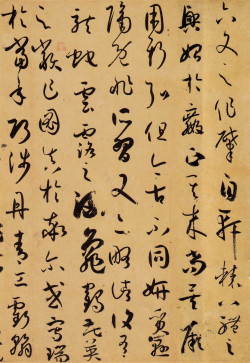 六文之作肇自軒轅八體之
興始於嬴政其來尚矣厥
用斯弘但今古不同妍質懸
隔既非所習又亦略諸復有
龍蛇雲露之流龜鶴花英
之類乍圖真於率爾或寫瑞
於當年巧涉丹青工虧翰